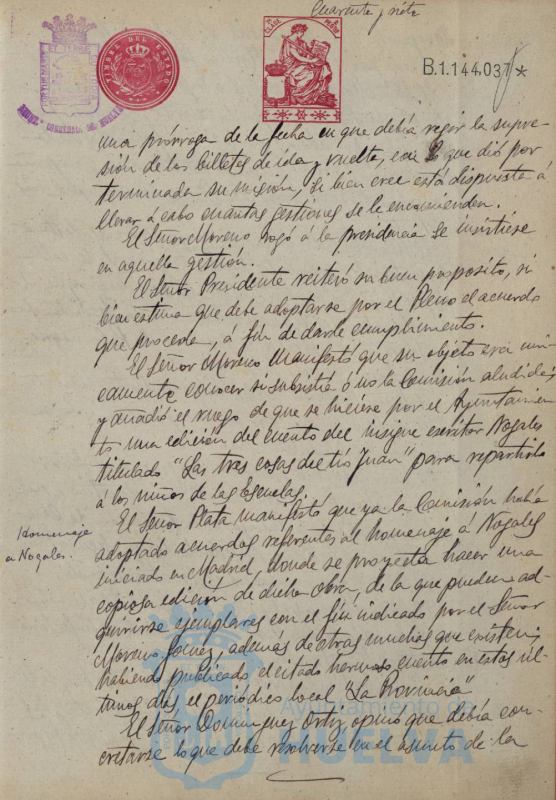 Cuarenta y siete
CLASE
TIMBRE DEL ESTADO
B.1.144.037 *
una prórroga de la fecha en que debía regir la supre-
sión de los billetes de ida y vuelta, con lo que dió por
terminada su misión, si bien cree está dispuesta á
llevar á cabo cuantas gestiones se le encomienden.
El Señor Moreno rogó á la presidencia se insistiese
en aquella gestión.
El Señor Presidente reiteró su buen proposito, si
bien estima que debe adoptarse por el Pleno el acuerdo
que proceda, á fin de darle cumplimiento.
El Señor Moreno manifestó que su objeto era úni-
camente conocer si subsistía ó no la Comisión aludida;
y añadió el ruego de que se hiciese por el Ayuntamien-
to una edición del cuento del insigne escritor Nogales
titulado "Las tres cosas del tío Juan" para repartirlo
á los niños de las Escuelas.
Homenaje
a Nogales.
El Señor Plata manifestó que ya la Comisión había
adoptado acuerdos referentes al homenaje á Nogales
iniciado en Madrid, donde se proyecta hacer una
copiosa edición de dicha obra, de la que pueden ad-
quirirse ejemplares con el fin indicado por el Señor
Moreno Gómez, además de otras muchas que existen;
habiendo publicado el citado hermoso cuento en estos úl-
timos días, el periódico local "La Provincia"
El Señor Dominguez Ortiz opinó que debía con-
cretarse lo que debe resolverse en el asunto de la
Ayuntamiento de
HUELVA